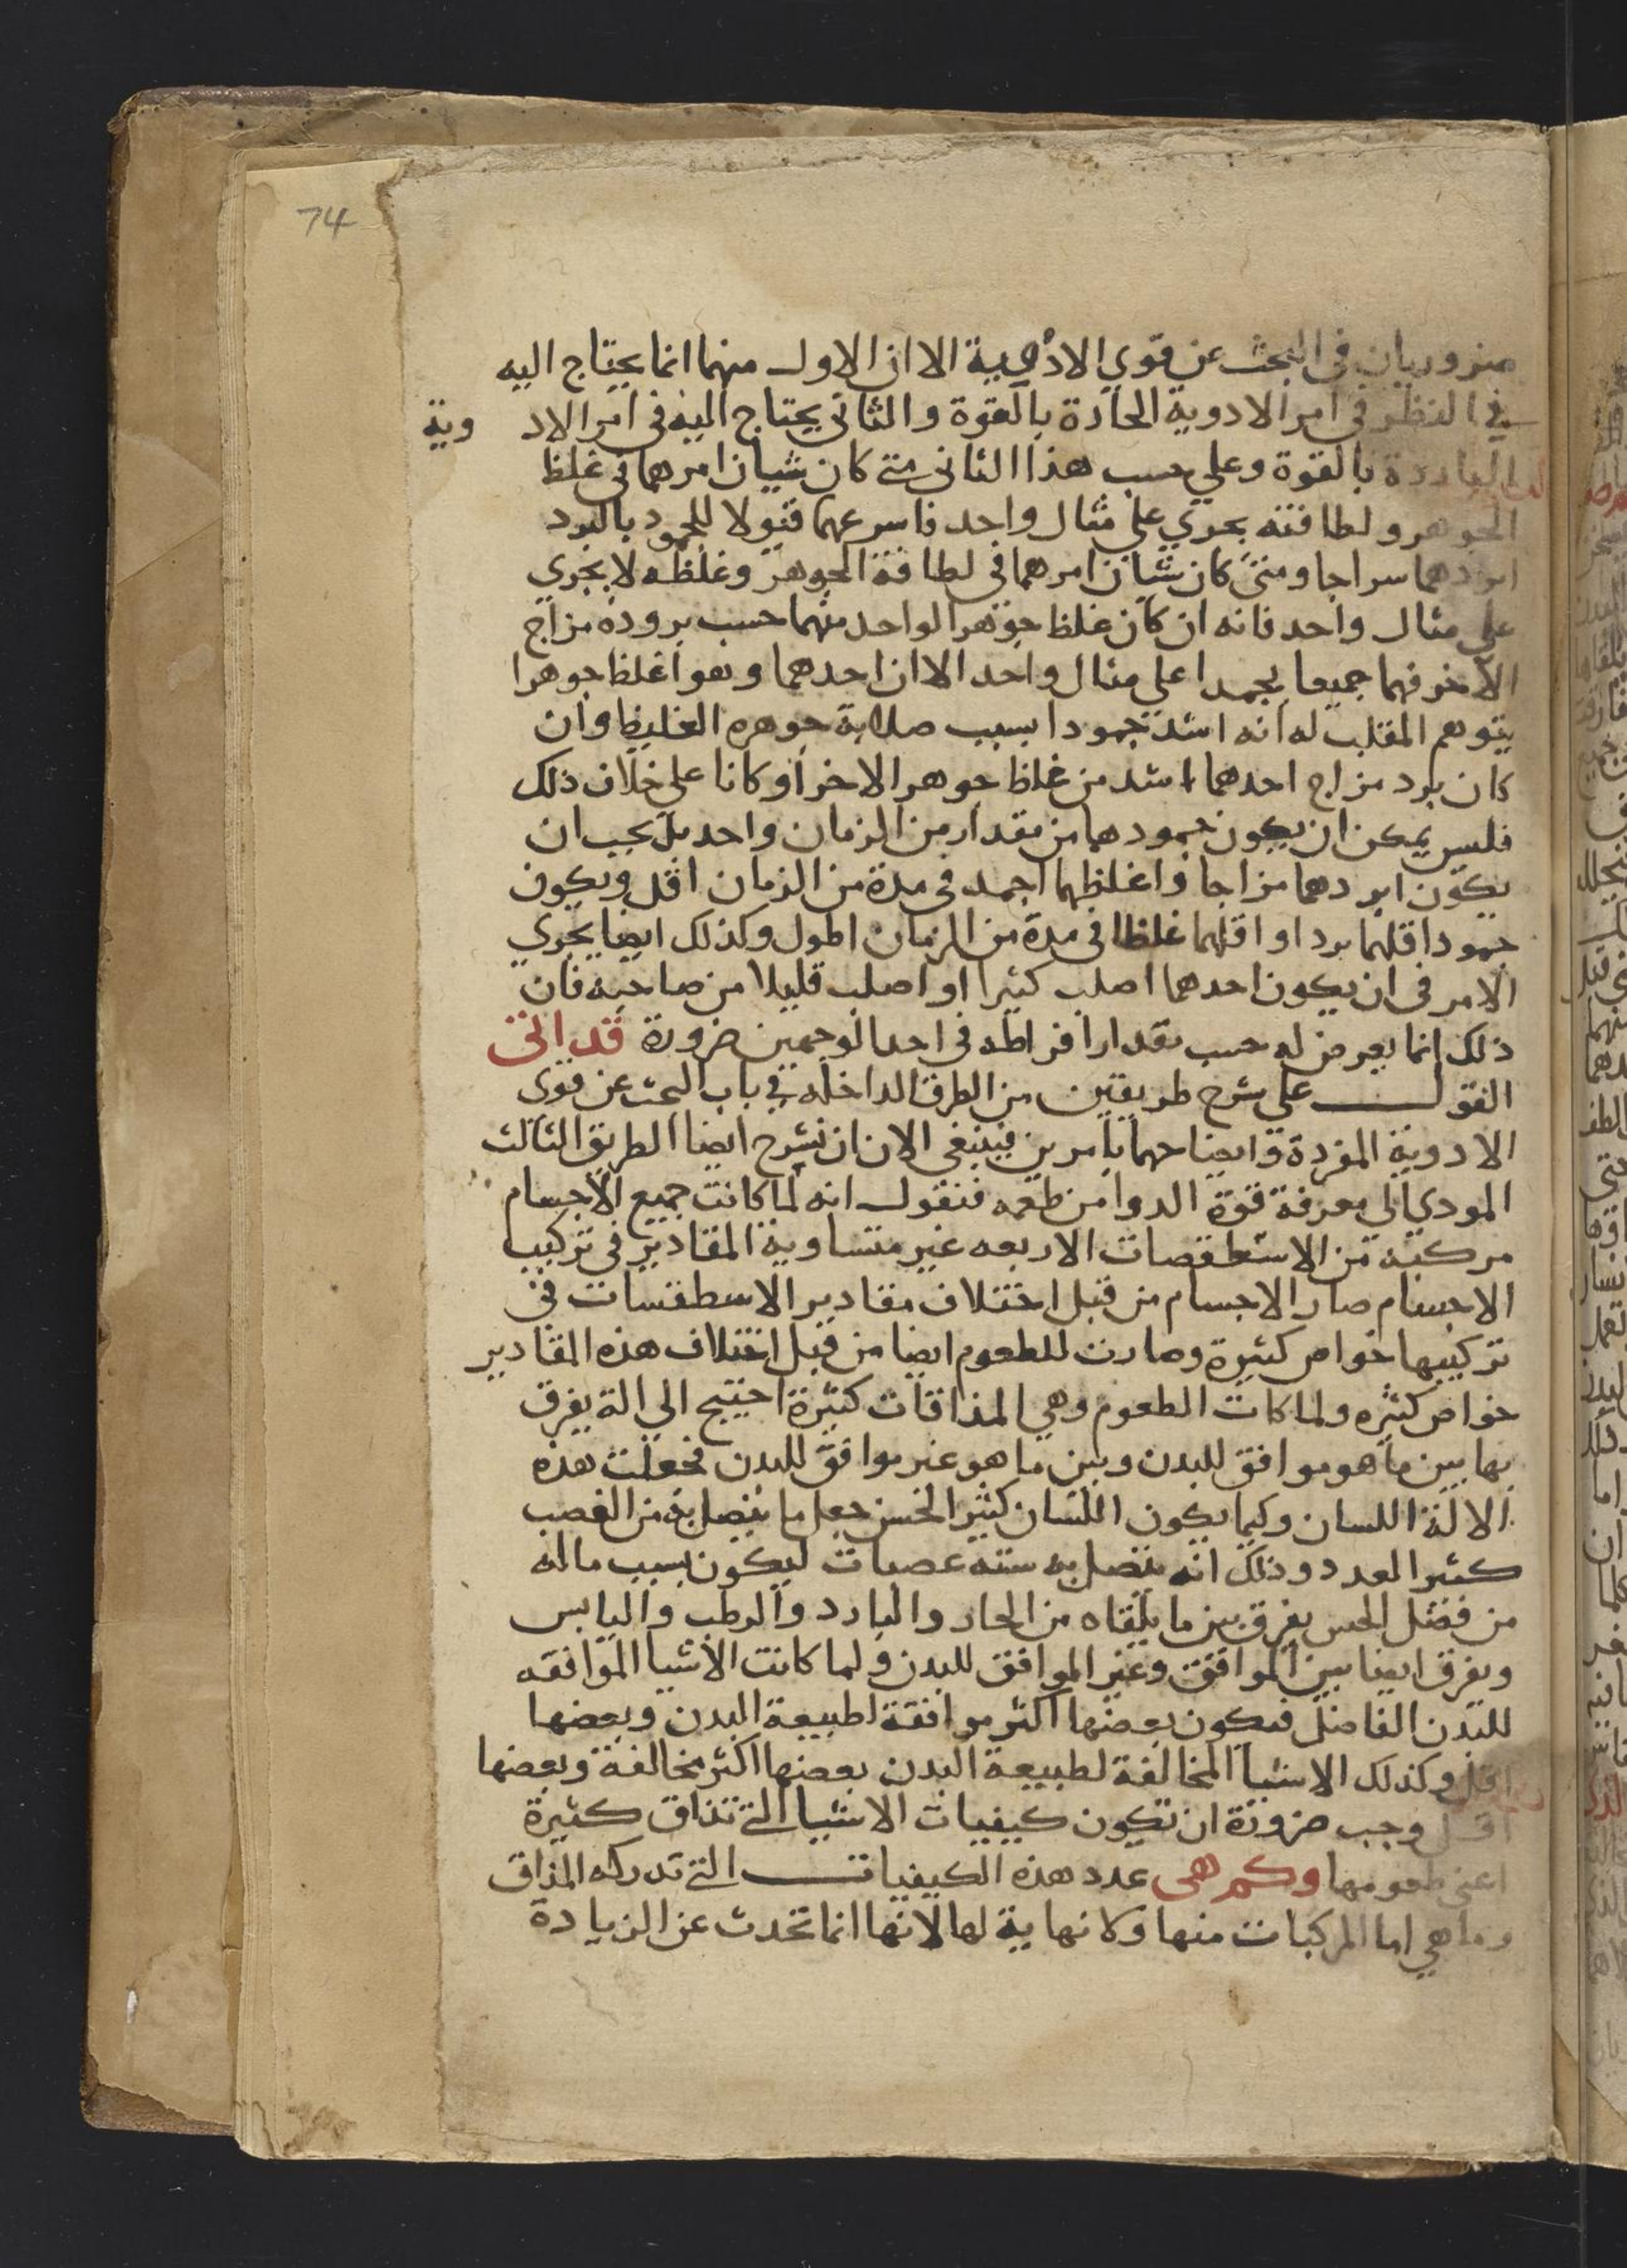 74
ضروريان في البحث عن قوي الادوية الا ان الاول منهما انما يحتاج اليه
في النظر في امر الادوية الحارة بالقوة والثاني يحتاج اليه في امر الادوية
الباردة بالقوة وعلي حسب هذا الثاني متي كان شيان امرهما في غلظ
الجوهر ولطافته يجري علي مثال واحد فاسرعهما قبولا للجمود بالبرد
ابردهما سراجا ومتي كان شيان امرهما في لطافة الجوهر وغلظه لا يجري
علي مثال واحد فانه ان كان غلظ جوهر الواحد منهما حسب برودة مزاج
الاخر فهما جميعا يجمدا علي مثال واحد الا ان احدهما وهو اغلظ جوهرا
يتوهم المقلب له انه اشد جمودا بسبب صلابة جوهره الغليظ وان
كان برد مزاج احدهما اشد من غلظ جوهر الاخر او كانا علي خلاف ذلك
فليس يمكن ان يكون جمودهما من مقدار من الزمان واحد بل يجب ان
يكون ابردهما مزاجا واغلظهما اجمد في مدة من الزمان اقل ويكون
جمود اقلهما بردا او اقلهما غلظا في مدة من الزمان اطول وكذلك ايضا يجري
الامر في ان يكون احدهما اصلب كثيرا او اصلب قليلا من صاحبه فان
ذلك انما يعرض له حسب مقدار افراطه في احد الوجهين ضرورة قد اتي
القول علي شرح طريقين من الطرق الداخله في باب البحث عن قوي
الادوية المفردة وايضاحهما بامرين فينبغي الان ان نشرح ايضا الطريق الثالث
المودي الي معرفة قوة الدوا من طعمه فنقول انه لما كانت جميع الاجسام
مركبة من الاسطقصات الاربعه غير متساوية المقادير في تركيب
الاجسام صار الاجسام من قبل اختلاف مقادير الاسطقسات في
تركيبها خواص كثيرة وصارت للطعوم ايضا من قبل اختلاف هذه المقادير
خواص كثيره ولما كات الطعوم وهي المذاقات كثيرة احتيج الي الة يفرق
بها بين ما هو موافق للبدن وبين ما هو غير موافق للبدن فجعلت هذه
الالة اللسان وكيما يكون اللسان كثير الحس جعل ما يتصل به من العصب
كثير العدد وذلك انه يتصل به سته عصبات ليكون بسبب ما له
من فضل الحس يفرق بين ما يلقاه من الحار والبارد والرطب واليابس
ويفرق ايضا بين الموافق وغير الموافق للبدن ولما كانت الاشيا الموافقه
للبدن الفاضل فيكون بعضها اكثر موافقة لطبيعة البدن وبعضها
اقل وكذلك الاشيا المخالفة لطبيعة البدن بعضها اكثر مخالفة وبعضها
اقل وجب ضرورة ان تكون كيفيات الاشيا التي تذاق كثيرة
اعني طعومها وكم هي عدد هذه الكيفيات التي تدركه المذاق
وما هي اما المركبات منها ولا نهاية لها لانها انما تحدث عن الزيادة